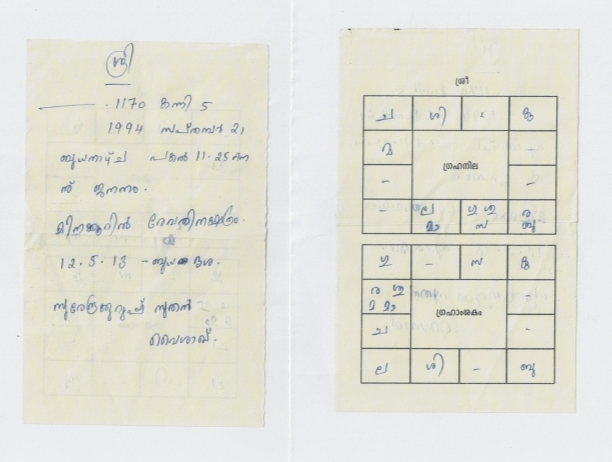 ശ്രീ
1170 കന്നി 5
1994 സപ്തംബർ 21
ബുധനാഴ്ച പകൽ 11.25 ന
ന് ജനനം.
മീനക്കൂറിൽ രേവതിനക്ഷത്രം.
12.5.13 - ബുധ ദശ.
സുതൻ
വൈശാഖ്.
ശ്രീ
ച ശി - കു
മ -
ഗ്രഹനില
- -
- ല മാ ഗു ശു സ ര ബു
ഗു - സ കു
ര ശു മ മാ -
ഗ്രഹാംശകം
ച -
ല ശി - ബു